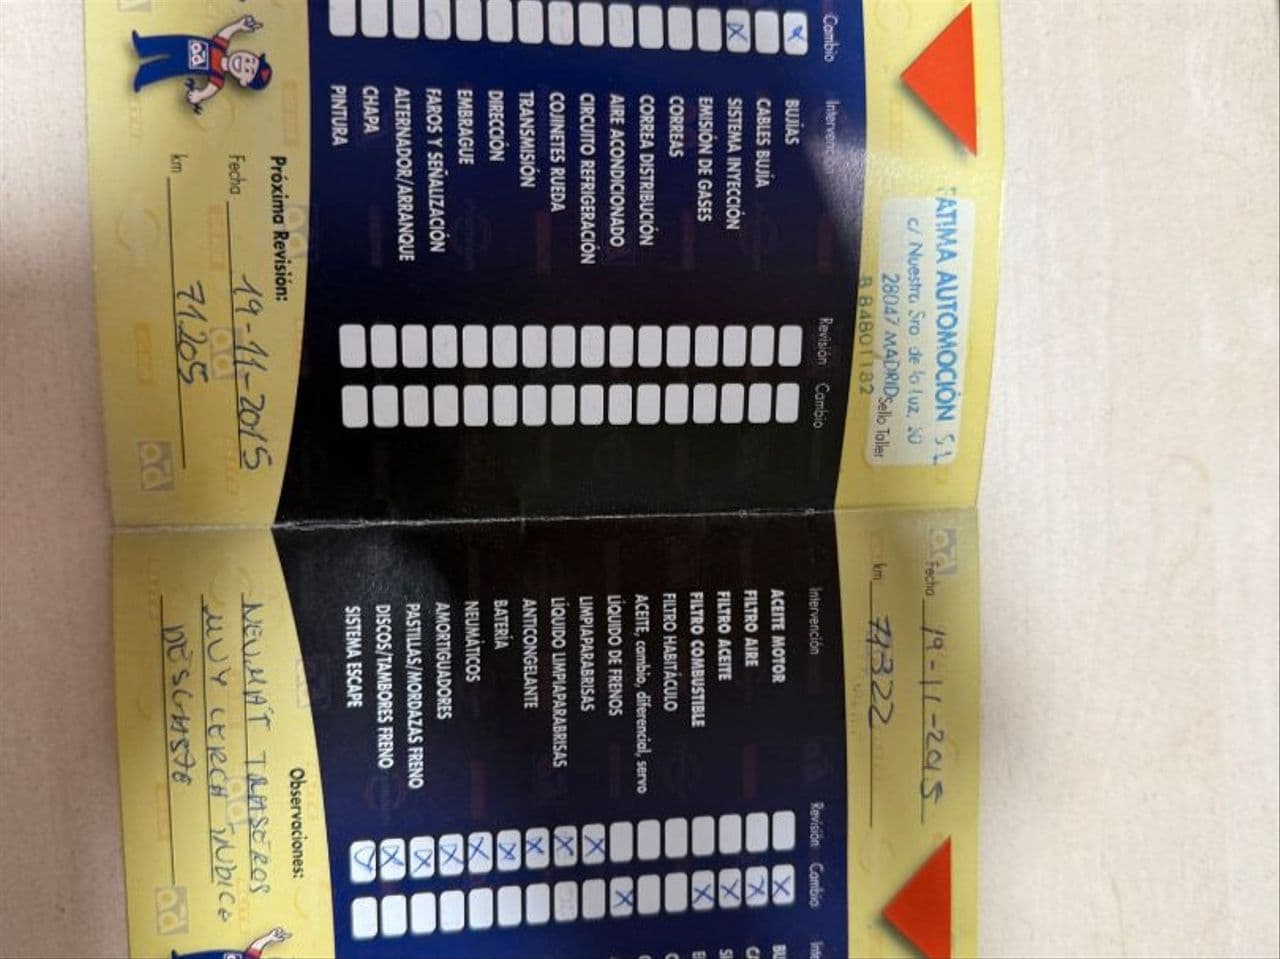 Cambio
Intervención
BUJÍAS
CABLES BUJÍA
SISTEMA INYECCIÓN
EMISIÓN DE GASES
CORREAS
CORREA DISTRIBUCIÓN
AIRE ACONDICIONADO
CIRCUITO REFRIGERACIÓN
COJINETES RUEDA
TRANSMISIÓN
DIRECCIÓN
EMBRAGUE
FAROS Y SEÑALIZACIÓN
ALTERNADOR/ARRANQUE
CHAPA
PINTURA
Próxima Revisión:
Fecha 19-11-2015
km 71205
FATIMA AUTOMOCIÓN S L
c/ Nuestra Sra de la luz, 30
28047 MADRID
B 84801182
Sello Taller
Revisión Cambio
ad
Fecha 19-11-2015
km 71322
Intervención
Revisión Cambio
ACEITE MOTOR
FILTRO AIRE
FILTRO ACEITE
FILTRO COMBUSTIBLE
FILTRO HABITÁCULO
ACEITE, cambio, diferencial, servo
LÍQUIDO DE FRENOS
LIMPIAPARABRISAS
LÍQUIDO LIMPIAPARABRISAS
ANTICONGELANTE
BATERÍA
NEUMÁTICOS
AMORTIGUADORES
PASTILLAS/MORDAZAS FRENO
DISCOS/TAMBORES FRENO
SISTEMA ESCAPE
Observaciones:
NEUMÁT TRASEROS
MUY CERCA INDICE
DESGASTE
ad